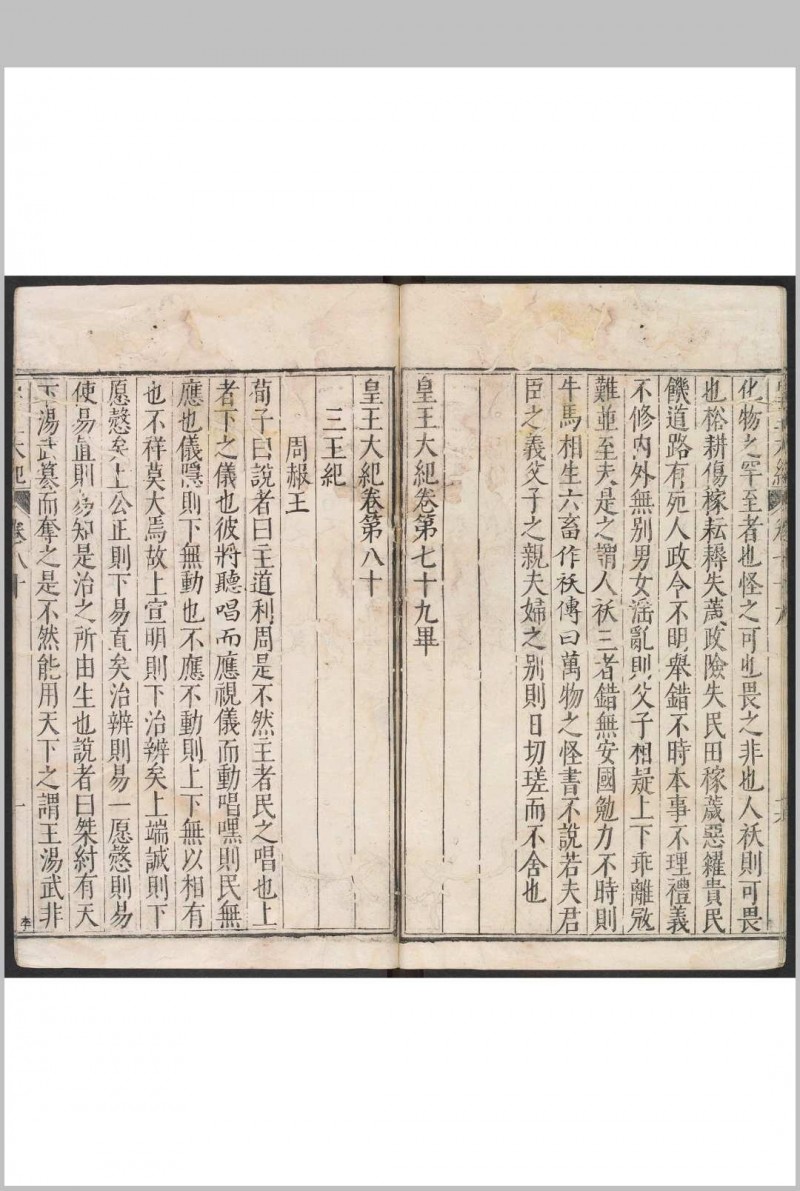 化物之罕至者也怪之可也畏之非也人祅則可畏
也楛耕傷稼耘耨失薉政險失民田稼薉惡糴貴民
饑道路有死人政令不明舉錯不時本事不理禮義
不修内外無别男女滛亂則父子相疑上下乖離宼
難並至夫是之謂人祅三者錯無安國勉力不時則
牛馬相生六畜作祅傳曰萬物之怪書不說若夫君
臣之義父子之親夫婦之别則日切瑳而不舍也
皇王大紀卷第七十九畢
皇王大紀卷第八十
三王紀
周赧王
荀子曰說者曰主道利周是不然主者民之唱也上
者下之儀也彼將聽唱而應視儀而動唱嘿則民無
應也儀隱則下無動也不應不動則上下無以相有
也不祥莫大焉故上宣明則下治辨矣上端誠則下
愿慤矣上公正則下易直矣治辨則易一愿慤則易
使易直則易知是治之所由生也說者曰桀紂有天
下湯武簒而奪之是不然能用天下之謂王湯武非
大紀
卷八十
一
李